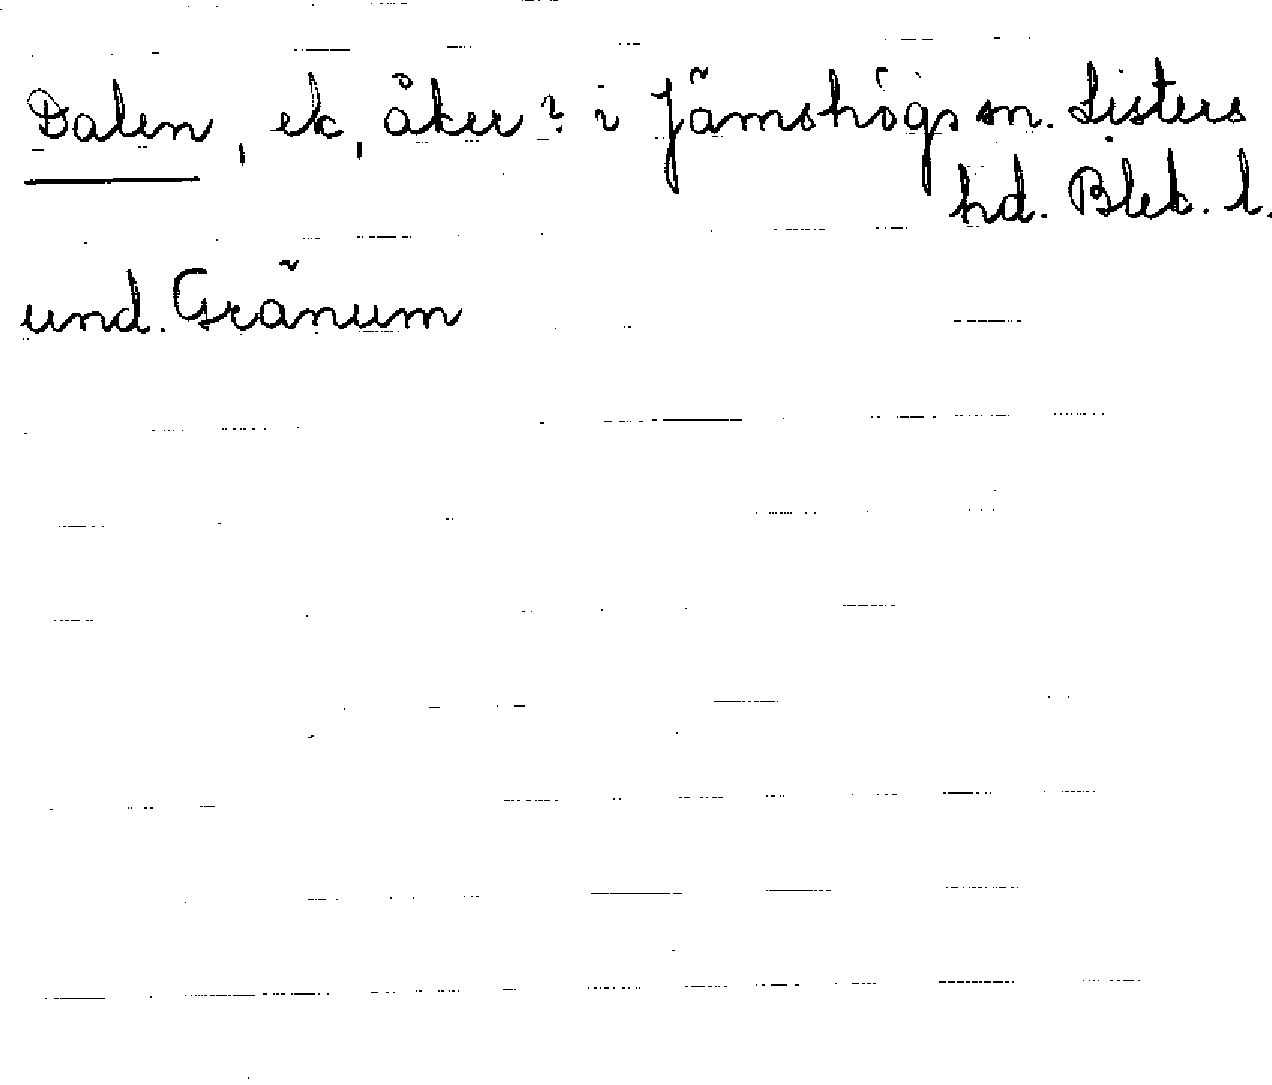 Dalen, ek, åker? i Jämshögs sn. Listers
hd. Blek. l.
und. Gränum